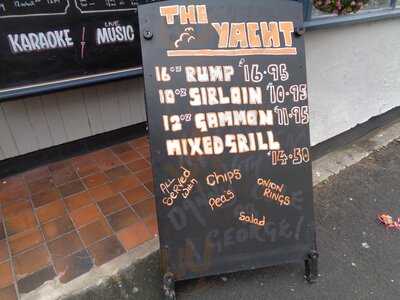 KARAOKE / LIVE MUSIC
THE
YACHT
16 OZ RUMP £16.95
10 OZ SIRLOIN £10.95
12 OZ GAMMON £11.95
MIXED GRILL
£14.50
ALL SERVED WITH
CHIPS
PEAS
ONION RINGS
SALAD
GEORGE!